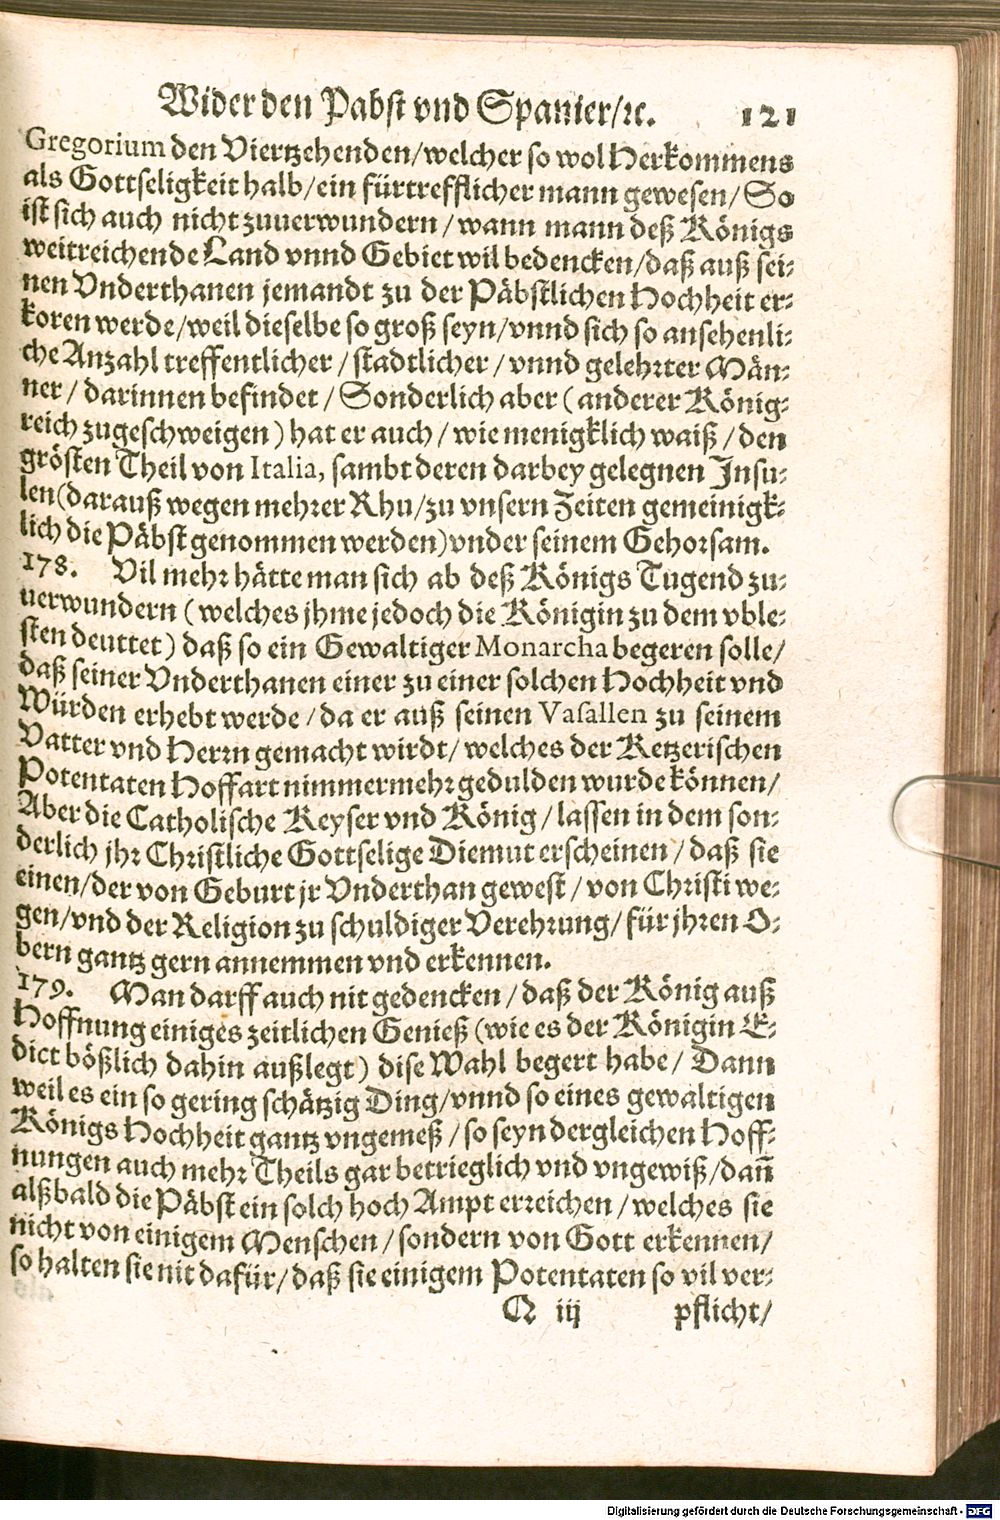 Wider den Pabst vnd Spanier/ꝛc. 121
Gregorium den Viertzehenden/welcher so wol Herkommens
als Gottseligkeit halb/ein fürtrefflicher mann gewesen/So
ist sich auch nicht zuuerwundern/wann mann deß Königs
weitreichende Land vnnd Gebiet wil bedencken/daß auß sei⸗
nen Vnderthanen jemandt zu der Päbstlichen Hochheit er⸗
koren werde/weil dieselbe so groß seyn/vnnd sich so ansehenli⸗
che Anzahl treffentlicher/stadtlicher/vnnd gelehrter Män⸗
ner/darinnen befindet/Sonderlich aber (anderer König⸗
reich zugeschweigen) hat er auch/wie menigklich waiß/den
grösten Theil von Italia, sambt deren darbey gelegnen Insu⸗
len (darauß wegen mehrer Rhu/zu vnsern Zeiten gemeinigk⸗
lich die Päbst genommen werden) vnder seinem Gehorsam.
178. Vil mehr hätte man sich ab deß Königs Tugend zu⸗
uerwundern (welches jhme jedoch die Königin zu dem vble⸗
sten deuttet) daß so ein Gewaltiger Monarcha begeren solle/
daß seiner Vnderthanen einer zu einer solchen Hochheit vnd
Würden erhebt werde/da er auß seinen Vasallen zu seinem
Vatter vnd Herrn gemacht wirdt/welches der Ketzerischen
Potentaten Hoffart nimmermehr gedulden wurde können/
Aber die Catholische Keyser vnd König/lassen in dem son⸗
derlich jhr Christliche Gottselige Diemut erscheinen/daß sie
einen/der von Geburt jr Vnderthan gewest/von Christi we⸗
gen/vnd der Religion zu schuldiger Verehrung/für jhren O⸗
bern gantz gern annemmen vnd erkennen.
179. Man darff auch nit gedencken/daß der König auß
Hoffnung einiges zeitlichen Genieß (wie es der Königin E⸗
dict bößlich dahin außlegt) dise Wahl begert habe/Dann
weil es ein so gering schätzig Ding/vnnd so eines gewaltigen
Königs Hochheit gantz vngemeß/so seyn dergleichen Hoff⸗
nungen auch mehr Theils gar betrieglich vnd vngewiß/dañ
alßbald die Päbst ein solch hoch Ampt erreichen/welches sie
nicht von einigem Menschen/sondern von Gott erkennen/
so halten sie nit dafür/daß sie einigem Potentaten so vil ver⸗
Q iij pflicht/
Digitalisierung gefördert durch die Deutsche Forschungsgemeinschaft - DFG